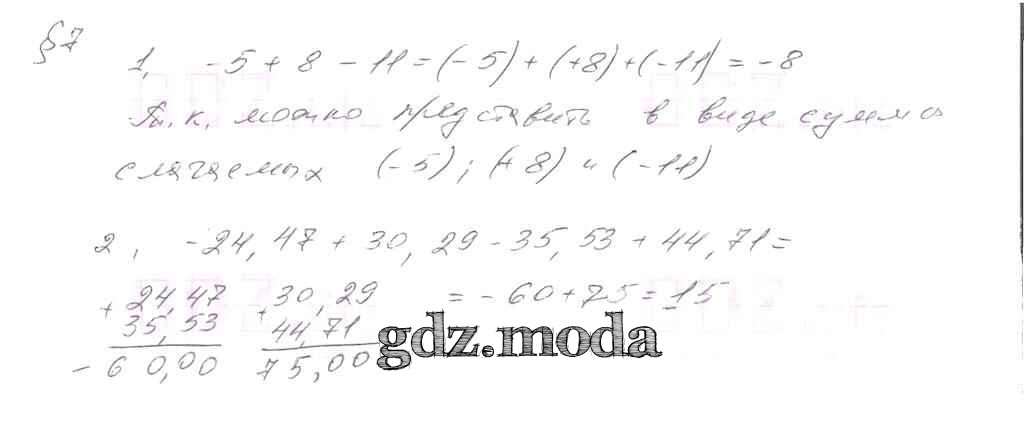 §7
1, -5+8-11=(-5)+(+8)+(-11)=-8
Т.к. можно представить в виде суммы
слагаемых (-5); (+8) и (-11)
2, -24,47+30,29-35,53+44,71=
+ 24,47 + 30,29 =-60+75=15
35,53 44,71
-60,00 75,00
gdz.moda